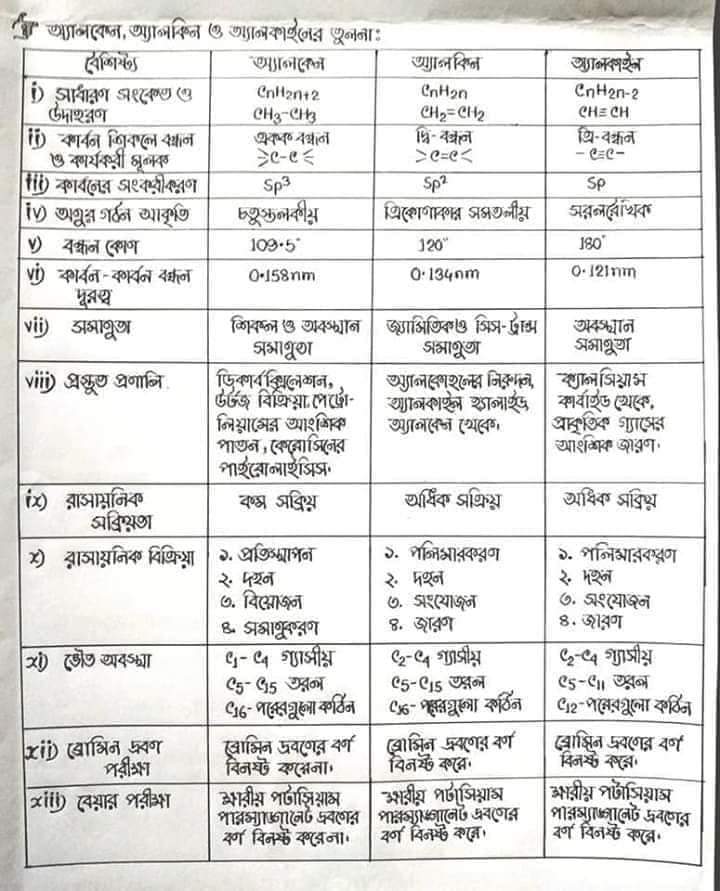 অ্যালকেন, অ্যালকিন ও অ্যালকাইনের তুলনা:
বৈশিষ্ট্য অ্যালকেন অ্যালকিন অ্যালকাইন
i) সাধারণ সংকেত ও CnH2n+2 CnH2n CnH2n-2
উদাহরণ CH3-CH3 CH2=CH2 CH≡CH
ii) কার্বন শিকলে বন্ধন একক বন্ধন দ্বি-বন্ধন ত্রি-বন্ধন
ও কার্যকরী মূলক >C-C< >C=C< -C≡C-
iii) কার্বনের সংকরীকরণ Sp³ Sp² Sp
iv) অণুর গঠন আকৃতি চতুস্তলকীয় ত্রিকোণাকার সমতলীয় সরলরৈখিক
v) বন্ধন কোণ 109.5° 120° 180°
vi) কার্বন-কার্বন বন্ধন 0.158nm 0.134nm 0.121nm
দূরত্ব
vii) সমাণুতা শিকল ও অবস্থান জ্যামিতিক ও সিস-ট্রান্স অবস্থান
সমাণুতা সমাণুতা সমাণুতা
viii) প্রস্তুত প্রণালি ডিকার্বক্সিলেশন, অ্যালকোহলের নিরুদন, ক্যালসিয়াম
উর্টজ বিক্রিয়া, পেট্রো- অ্যালকাইল হ্যালাইড, কার্বাইড থেকে,
লিয়ামের আংশিক অ্যালকেন থেকে। প্রাকৃতিক গ্যাসের
পাতন, কেরোসিনের আংশিক জারণ।
পাইরোলাইসিস।
ix) রাসায়নিক কম সক্রিয় অধিক সক্রিয় অধিক সক্রিয়
সক্রিয়তা
x) রাসায়নিক বিক্রিয়া ১. প্রতিস্থাপন ১. পলিমারকরণ ১. পলিমারকরণ
২. দহন ২. দহন ২. দহন
৩. বিয়োজন ৩. সংযোজন ৩. সংযোজন
৪. সমাণুকরণ ৪. জারণ ৪. জারণ
xi) ভৌত অবস্থা C1-C4 গ্যাসীয় C2-C4 গ্যাসীয় C2-C4 গ্যাসীয়
C5-C15 তরল C5-C15 তরল C5-C11 তরল
C16-পরেরগুলো কঠিন C16-পরেরগুলো কঠিন C12-পরেরগুলো কঠিন
xii) ব্রোমিন দ্রবণ ব্রোমিন দ্রবণের বর্ণ ব্রোমিন দ্রবণের বর্ণ ব্রোমিন দ্রবণের বর্ণ
পরীক্ষা বিনষ্ট করেনা। বিনষ্ট করে। বিনষ্ট করে।
xiii) বেয়ার পরীক্ষা ক্ষারীয় পটাসিয়াম ক্ষারীয় পটাসিয়াম ক্ষারীয় পটাসিয়াম
পারম্যাঙ্গানেট দ্রবণের পারম্যাঙ্গানেট দ্রবণের পারম্যাঙ্গানেট দ্রবণের
বর্ণ বিনষ্ট করেনা। বর্ণ বিনষ্ট করে। বর্ণ বিনষ্ট করে।